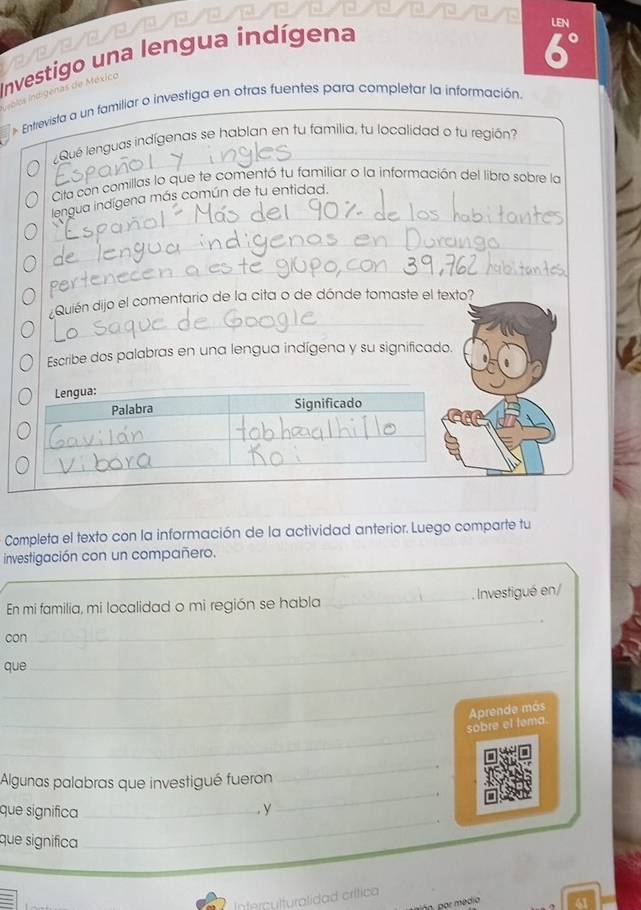 LEN
6°
Investigo una lengua indígena
Pueblos Indígenas de México
Entrevista a un familiar o investiga en otras fuentes para completar la información.
¿Qué lenguas indígenas se hablan en tu familia, tu localidad o tu región?
Español y ingles
Cita con comillas lo que te comentó tu familiar o la información del libro sobre la
lengua indígena más común de tu entidad.
"Español" Más del 90% de los habitantes
de lengua indigenas en Durango
pertenecen a este grupo, con 39,762 habitantes.
¿Quién dijo el comentario de la cita o de dónde tomaste el texto?
Lo saque de Google
Escribe dos palabras en una lengua indígena y su significado.
Lengua:
Palabra Significado
Gavilán
Vibora Koi
Completa el texto con la información de la actividad anterior. Luego comparte tu
investigación con un compañero.
En mi familia, mi localidad o mi región se habla . Investigué en/
con .
que
.
Aprende más
sobre el tema.
Algunas palabras que investigué fueron .
que significa , y
que significa .
Interculturalidad crítica
por medio
41